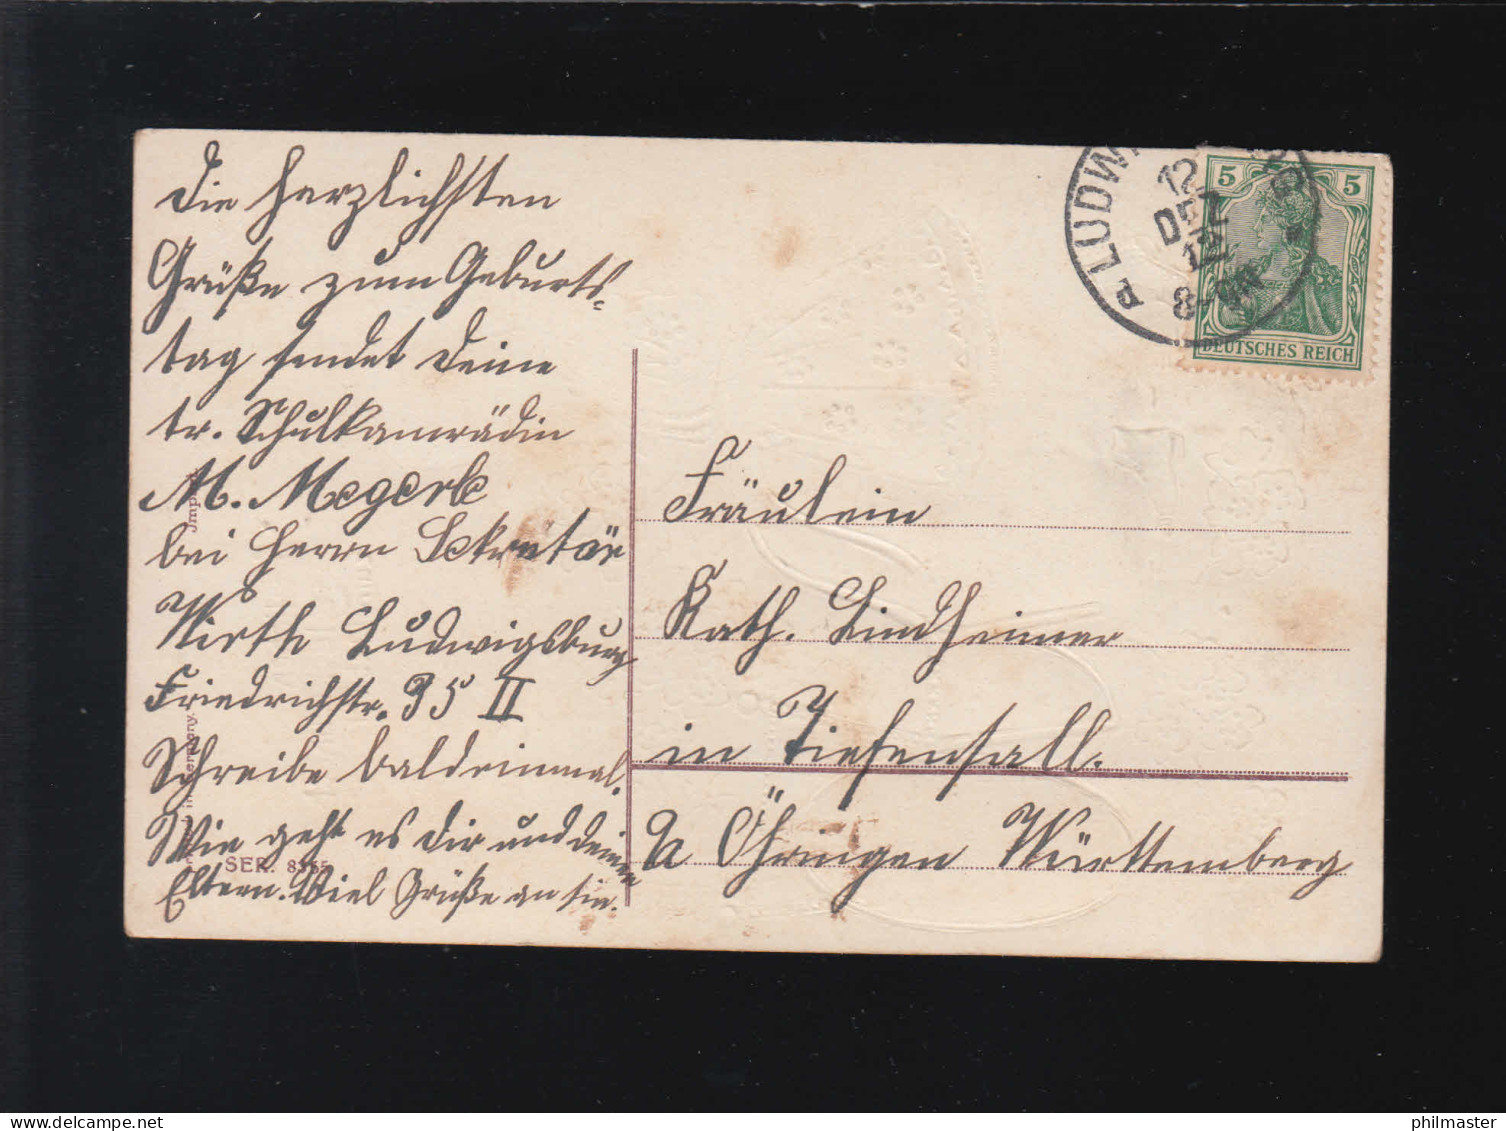 Die herzlichsten
Grüße zum Geburts-
tag sendet Deine
tr. Schulkamrädin
M. Megerle
bei Herrn Sekretär
Wirth Ludwigsburg
Friedrichstr. 35 II
Schreibe bald einmal.
Wie geht es Dir und deinen
Eltern. Viel Grüße an sie.
SER. 8355
P. LUDWI
12
DEZ
12
8-9N
5 5
DEUTSCHES REICH
Fräulein
Kath. Lindheimer
in Tiefensall.
Öhringen Württemberg
philmaster